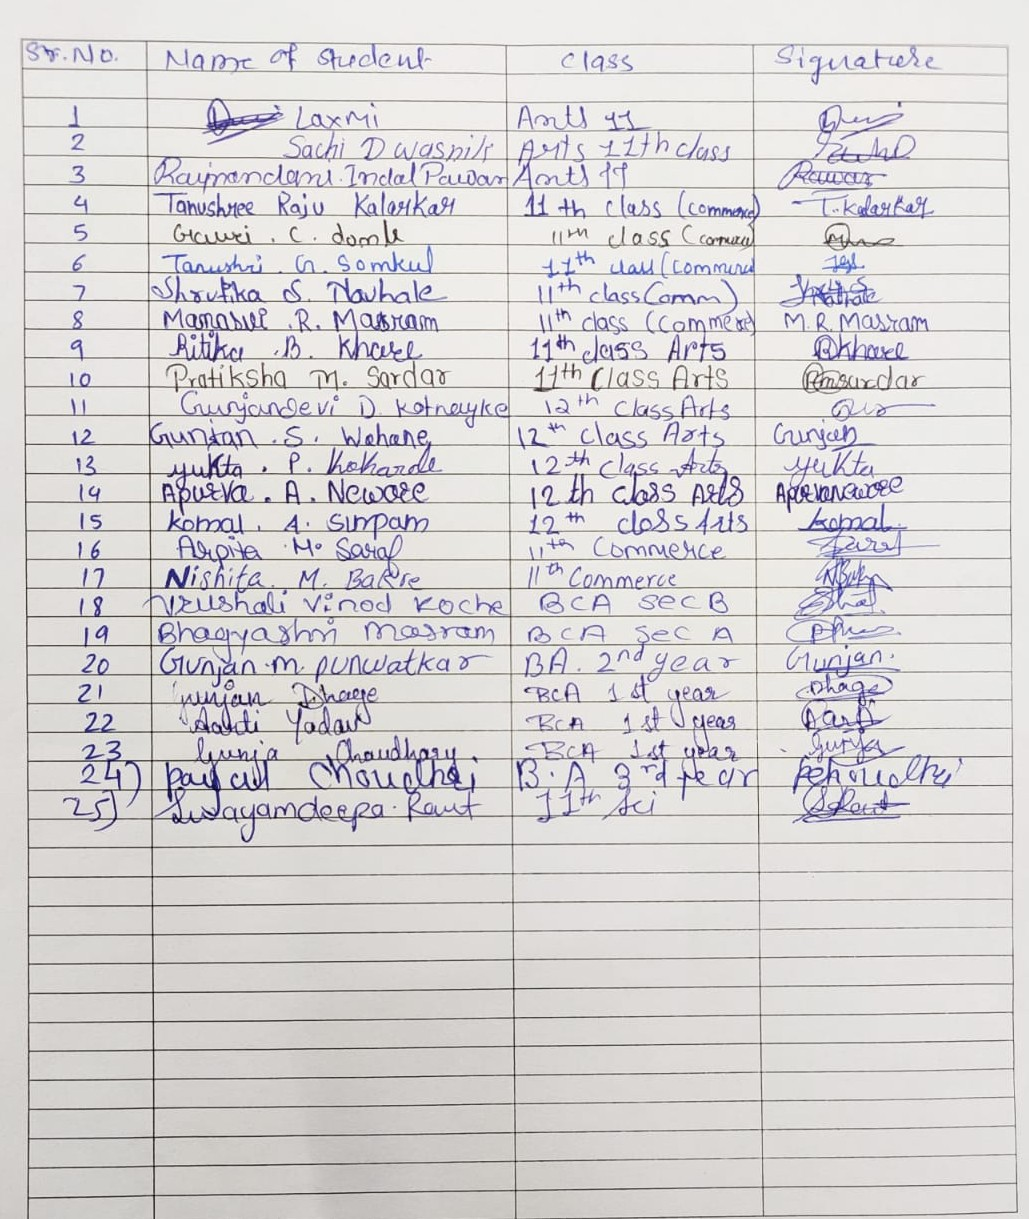 Sr.No. Name of student class Signature
1 Laxmi Arts 11
2 Sachi D wasnik Arts 11th class
3 Rajnandani. Indal Pawar Arts 11 Pawar
4 Tanushree Raju Kalarkar 11 th class (commerce) T. Kalarkar
5 Gauri . C. domle 11th class (commerce)
6 Tanushri . G. Somkul 11th class (commerce
7 Shrutika S. Navhale 11th class (Comm)
8 Manasvi .R. Masram 11th class (Commerce) M.R. Masram
9 Ritika .B. Khare 11th class Arts Rkhare
10 Pratiksha M. Sardar 11th Class Arts
11 Gunjandevi D. Kotnayke 12th class Arts
12 Gunjan .S. Wahane 12th class Arts Gunjan
13 yukta . P. 12th class Arts yukta
14 Apurva . A. Neware 12th class Arts Apurvaneware
15 Komal. A. Sirpam 12th class Arts komal.
16 Arpita M. Saraf 11th Commerce
17 Nishita. M. Bakre 11th Commerce
18 Vrushali Vinod Koche BCA sec B
19 Bhagyashri Masram BCA sec A
20 Gunjan.m. punwatkar BA. 2nd year Gunjan.
21 gunjan Dhage BCA 1 st year Dhage
22 Aarti Yadav BCA 1 st year Aarti
23 Gunja Choudhary. BCA 1st year Gunja
24) Payal B.A 3rd year
25) Swayamdeepa. Raut 11th Sci SRaut